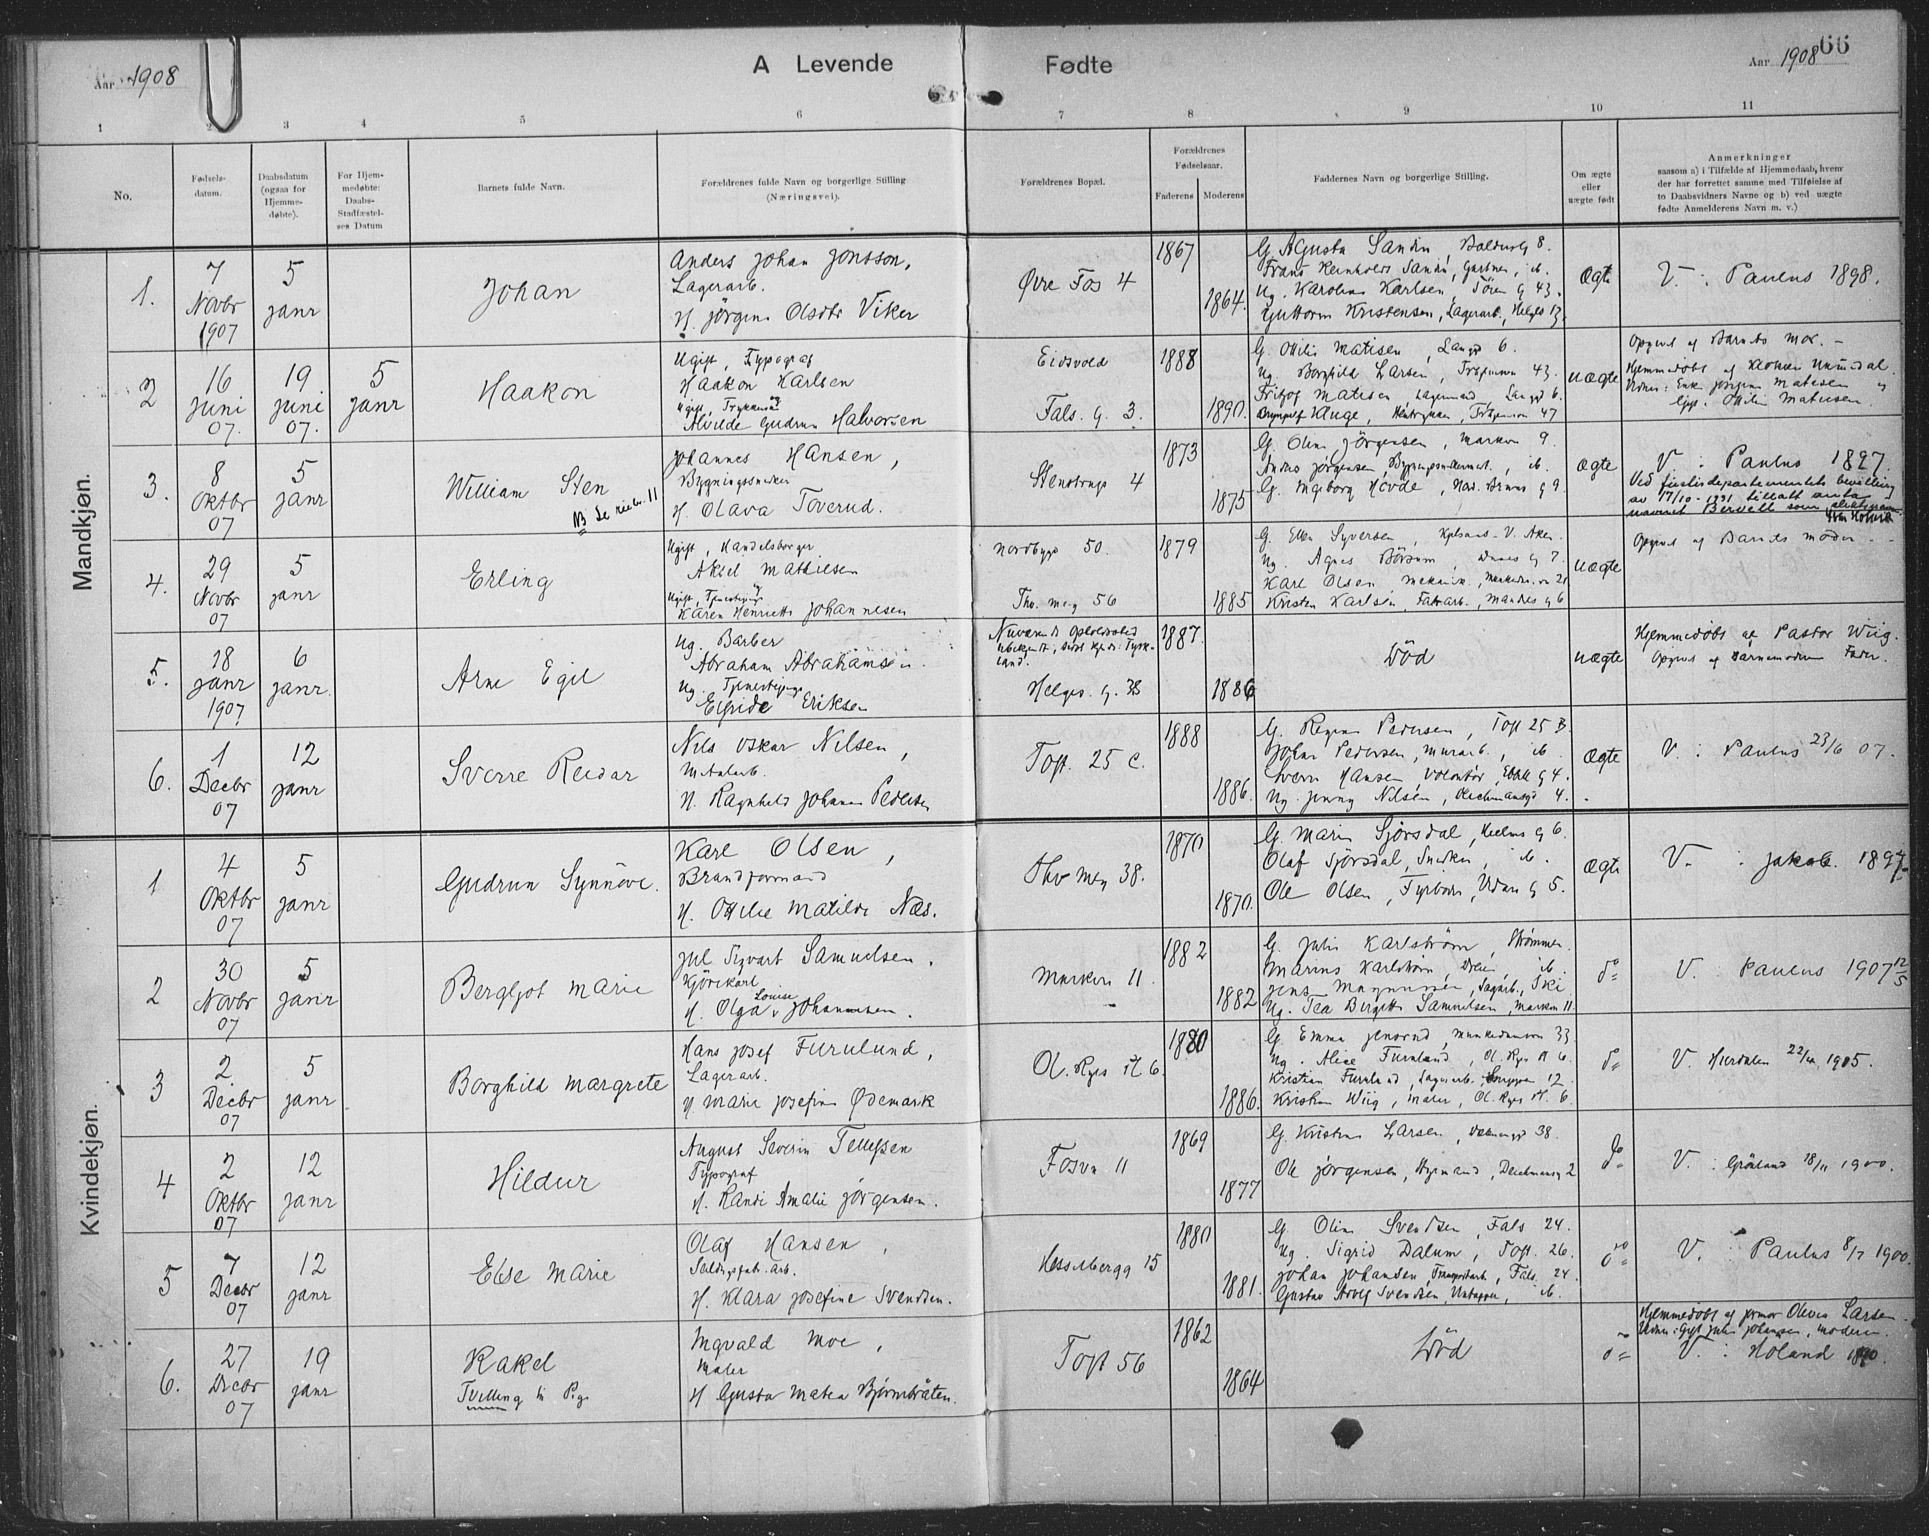 Aar 1908
A Levende Fødte
Aar 1908
66
1 2 3 4 5 6 7 8 9 10 11
No.
Fødsels-
datum.
Daabsdatum
(ogsaa for
Hjemme-
døbte).
For Hjem-
medøbte:
Daabs-
Stadfæstel-
ses Datum
Barnets fulde Navn.
Forældrenes fulde Navn og borgerlige Stilling
(Næringsvei).
Forældrenes Bopæl.
Forældrenes
Fødselsaar.
Faderens Moderens
Faddernes Navn og borgerlige Stilling.
Om ægte
eller
uægte født
Anmerkninger
saasom a) i Tilfælde af Hjemmedaab, hvem
der har forrettet samme med Tilføielse af
to Daabsvidners Navne og b) ved uægte
fødte Anmelderens Navn m. v.)
Mandkjøn.
1.
7
Novbr
1907
5
janr
Johan
Anders Johan Jonsson,
Lagerarb.
H. Jörgine Olsdtr Viker
Øvre Fos 4
1867
1864.
G. Agusta Sandin, Baldersg 8.
Frans Reinholdt Sandin, Gartner, ib.
Ug. Karoline Karlsen, Tören g 43.
Guttorm Kristensen, Lagerarb., Helges 13.
Ægte
V. : Paulus 1898.
2
16
Juni
07.
19
Juni
07.
5
janr
Haakon
Ugift, Typograf
Haakon Karlsen
Ugift, Trykkerske
Alvilde Gudrun Halvorsen
Eidsvold
Fals. g. 3.
1888
1890.
G. Ottilie Matisen, Langg 6.
Ug. Borghild Larsen, 43.
Fritjof Matisen, Lagermand, Langg 6.
Kluge, 47
uægte
Opgivet af Barnets mor. -
Hjemmedøbt af
Vidner: Enke Jörgine Matisen og
Gift. Ottilie Matisen
3.
8
Oktbr
07
5
janr
William Sten
NB Se 11
Johannes Hansen,
Bygningssnekker
H. Olava Toverud.
Stenstrups 4
1873
1875
G. Oline Jörgensen, Markvn 9.
Anders Jörgensen, ib.
G. Ingeborg Hovde, g 9.
Ægte
V. : Paulus 1897.
Ved justisdepartementets bevilling
av 17/10-1931 tillatt anta
navnet Bervell som slektsnavn.
4.
29
Novbr
07
5
janr
Erling
Ugift, Handelsborger
Aksel Mathisen
og
Ugift, Tjenestepige
Karen Henriette Johannesen
Nordbygg 50.
Thv. meg 56
1879
1885
G. Ellen Syversen, V. Aker.
Ug. Agnes Börsum, g 7.
Karl Olsen Mekanik.,
Kristen Karlsen, Fabrarb., g 6
uægte
Opgivet af Barnets moder.
5.
18
janr
1907
6
janr.
Arne Egil
Ug. Barber
Abraham Abrahamsen.
Ug. Tjenestepige
Elfride Eriksen
Nuværende Opholdssted
ubekjendt, sidst kjendt: Tysk-
land.
Helges. g. 38
1887.
1886
Död
uægte
Hjemmedøbt af Pastor Wiig.
Opgivet af Barnemoderens Fader.
6.
1
Decbr
07
12
janr
Sverre Reidar
Nils Oskar Nilsen,
Metalarb.
H. Ragnhild Johanne Pedersen
Toft. 25 C.
1888
1886.
G. Regine Pedersen, Toft 25 B.
Johan Pedersen, Murarb., ib.
Sverre Hansen Volontör, g 4.
Ug. Jenny Nilsen, 4.
Ægte
V. : Paulus 23/6 07.
Kvindekjøn.
1
4
Oktbr
07
5
janr
Gudrun Synnöve.
Karl Olsen,
Brandformand
H. Ottilie Matilde Næs.
Thv meg 38.
1870
1870.
G. Marie Sjörsdal, Hjelms g 6.
Olaf Sjörsdal, Snekker, ib.
Ole Olsen, Fyrböter, g 5.
Ægte
V. : Jakob. 1897.
2
30
Novbr
07
5
janr
Bergljot Marie
Jul Sigvart Samuelsen,
Kjörekarl
H. Olga Louise Johannesen.
Markvn 11
1882
1882
G. Julie Karlström, Strömmen.
Marius Karlström, Dreier, ib.
Jens Magnussen, Sagarb., Ski
Ug. Tea Bergitte Samuelsen, Markvn 11.
do
V. Paulus 1907 12/5
3
2
Decbr
07
5
janr
Borghild Margrete
Hans Josef Furulund,
Lagerarb.
H. Marie Josefine Ødemark
Ol. Ryes Pl 6.
1880
1886.
G. Emma Jensrud, 33
Ug. Alice Furulund, Ol. Ryes Pl 6.
Kristian Furulund, Lagerarb., 12
Kristian Wiig, Maler, Ol. Ryes Pl. 6.
do
V. Hurdalen 22/4 1905.
4
2
Oktbr
07
12
janr
Hildur
August Severin Tellefsen
Typograf
H. Randi Amalie Jörgensen.
Fosvn 11
1869
1877
G. Kristine Larsen, 38.
Ole Jörgensen, Deichmansg 2
do
V. : Grönland 18/11 1900.
5
7
Decbr
07
12
janr
Else Marie
Olaf Hansen,
H. Klara Josefine Svendsen.
Hesselbergg 15
1880
1881.
G. Oline Svendsen, Fals 24.
Ug. Sigrid Dalum, Toft. 26.
Johan Johansen, Transportarb., Fals. 24.
Gustav Adolf Svendsen, ib.
do
V. : Paulus 8/7 1900.
6.
27
Decbr
07
19
janr
Rakel
Tvilling til Pige
Ingvald Moe,
Maler
H Gusta Matea Bjørnbråten.
Toft 56
1862
1864
Död
do
Hjemmedøbt af jormor Oleva Larsen.
Vidner: Gift Julie Johansen, moderen.
V. : Höland